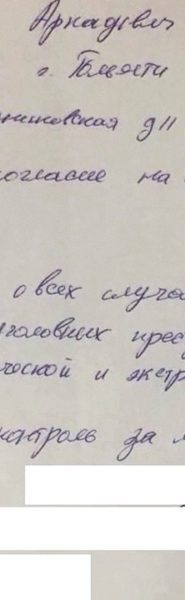 Аркадієвич
г. Тольятти
нниковская д 11
согласие на
о всех случа
головных прес
ческой и экстр
контроль за